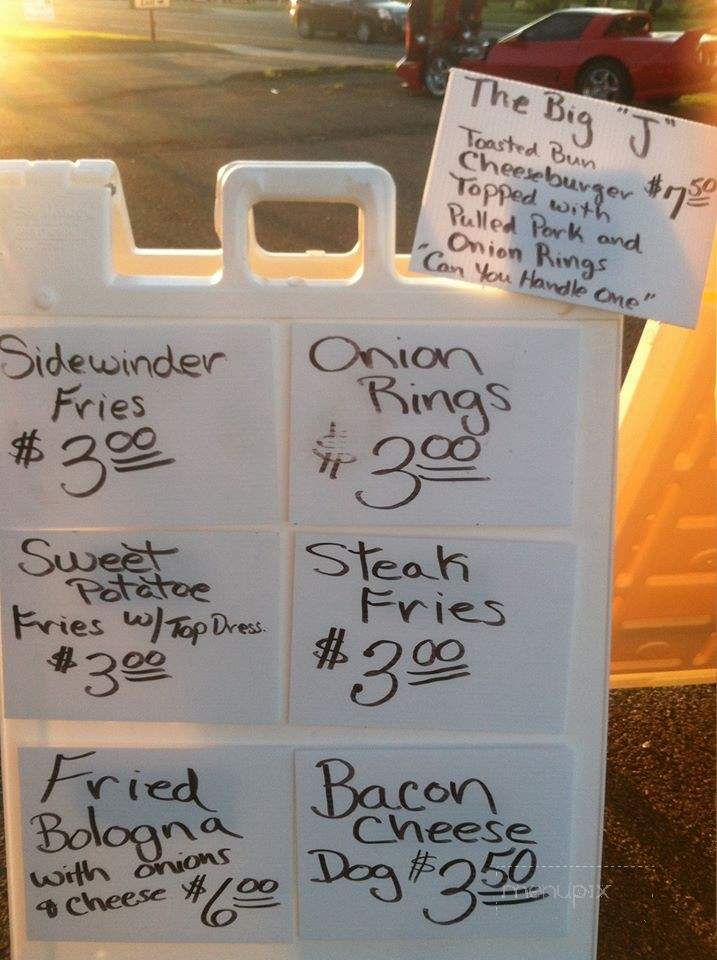 The Big "J"
Toasted Bun
Cheeseburger $7.50
Topped with
Pulled Pork and
Onion Rings
"Can You Handle One"
Sidewinder
Fries
$3.00
Onion
Rings
$3.00
Sweet
Potatoe
Fries w/ Top Dress.
$3.00
Steak
Fries
$3.00
Fried
Bologna
with onions
& cheese $6.00
Bacon
Cheese
Dog $3.50
menupix